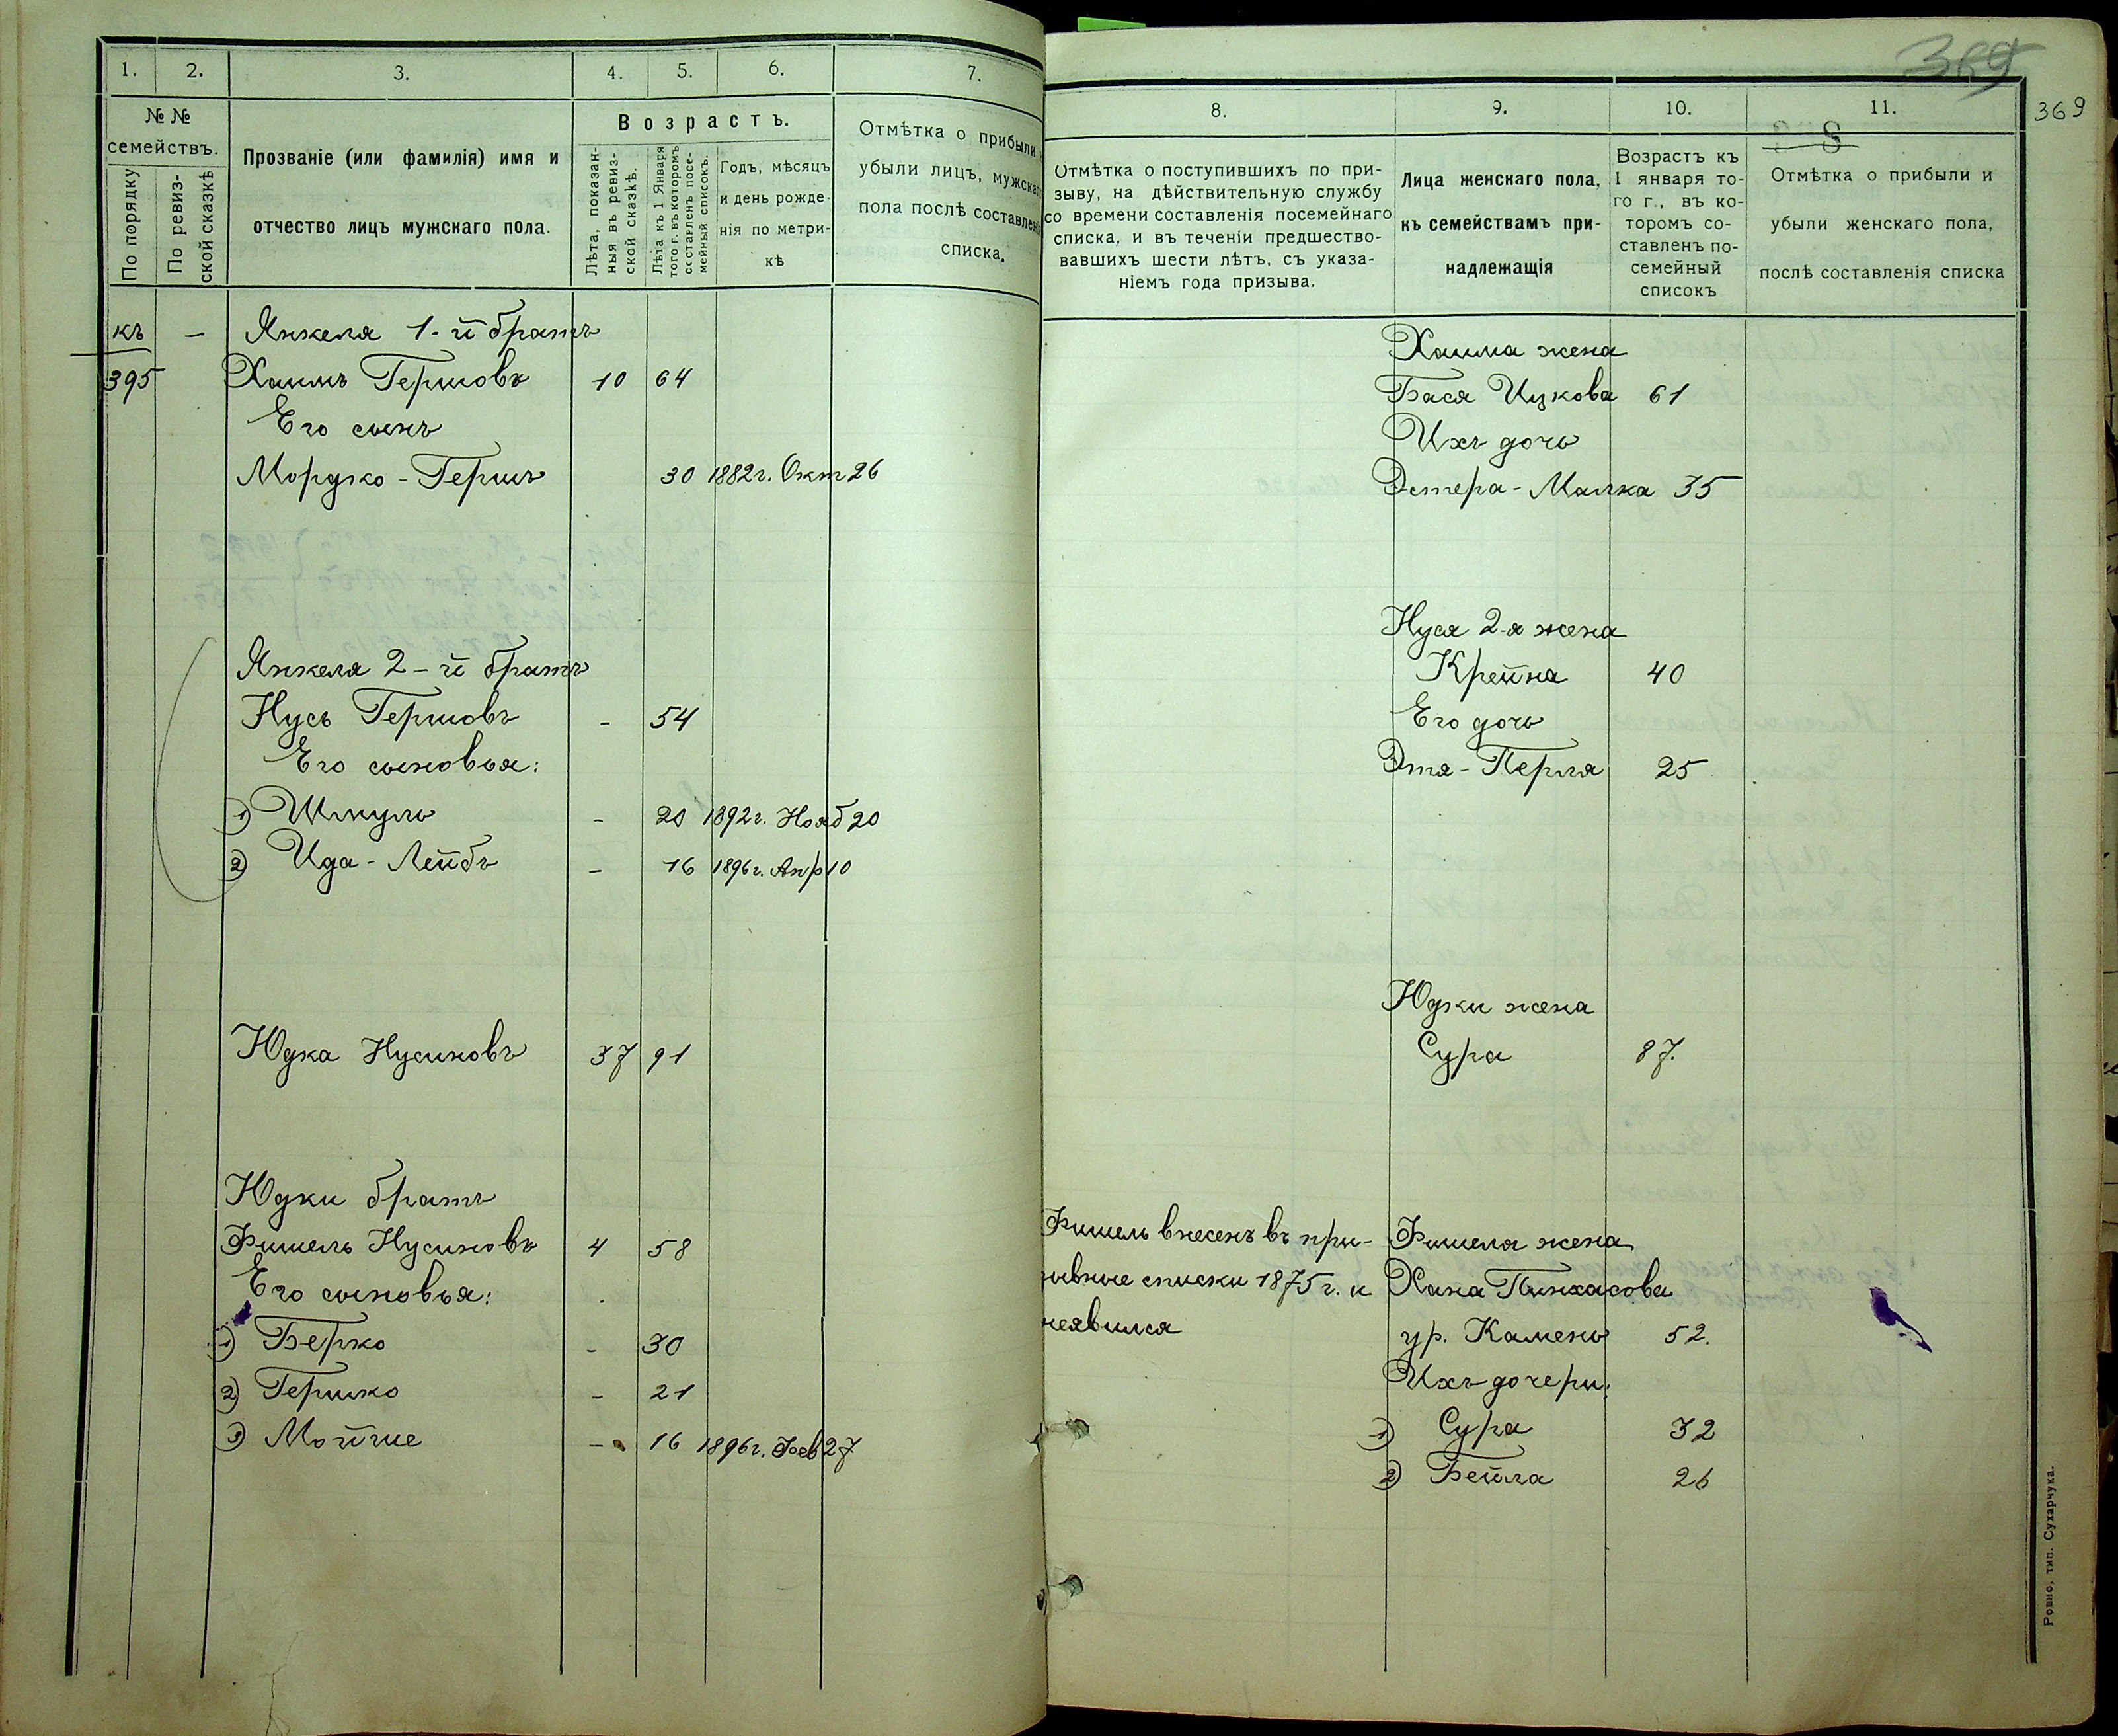 1. 2. 3. 4. 5. 6. 7.
№ № семействъ.
По порядку
По ревизской сказкѣ
Прозваніе (или фамилія) имя и
отчество лицъ мужскаго пола.
Возрастъ.
Лѣта, показан-
ныя въ ревиз-
ской сказкѣ.
Лѣта къ 1 Января
того г. въ которомъ
составленъ посе-
мейный списокъ.
Годъ, мѣсяцъ
и день рожде-
нія по метри-
кѣ
Отмѣтка о прибыли
убыли лицъ, мужскаго
пола послѣ составлен
списка.
къ — Янкеля 1-й братъ
395 Хаимъ Гершовъ 10 64
Его сынъ
Мордко-Гершъ 30 1882г. Окт 26
Янкеля 2-й братъ
Нусь Гершовъ - 54
Его сыновья:
1) Шмуль - 20 1892г. Нояб 20
2) Ида-Лейбъ - 16 1896г. Апр 10
Юдка Нусиновъ 37 91
Юдки братъ
Фишель Нусиновъ 4 58
Его сыновья:
1) Берко - 30
2) Гершко - 21
3) Мойше - 16 1896г. Фев 27
369
369
8. 9. 10. 11.
Отмѣтка о поступившихъ по при-
зыву, на дѣйствительную службу
со времени составленія посемейнаго
списка, и въ теченіи предшество-
вавшихъ шести лѣтъ, съ указа-
ніемъ года призыва.
Лица женскаго пола,
къ семействамъ при-
надлежащія
Возрастъ къ
1 января то-
го г., въ ко-
торомъ со-
ставленъ по-
семейный
списокъ
Отмѣтка о прибыли и
убыли женскаго пола,
послѣ составленія списка
Хаима жена
Бася Ицкова 61
Ихъ дочь
Эстера-Малка 35
Нуся 2-я жена
Крейна 40
Его дочь
Этя-Перля 25
Юдки жена
Сура 87.
Фишель внесенъ въ при-
зывные списки 1875г. и
неявился
Фишеля жена
Хана Пинхасова
ур. Камень 52.
Ихъ дочери:
1) Сура 32
2) Бейла 26
Ровно, тип. Сухарчука.